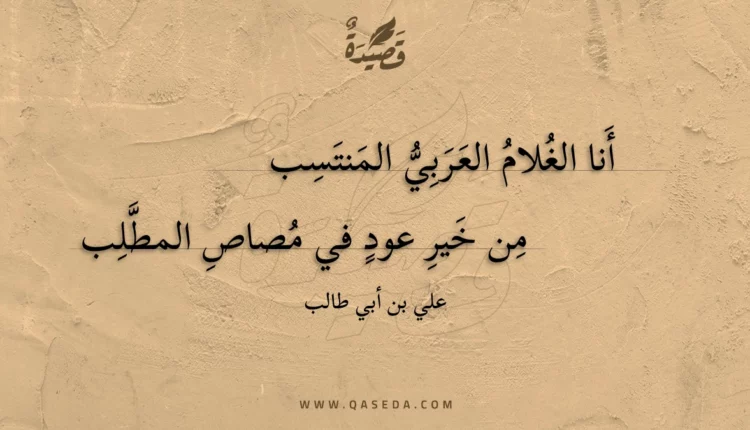 قَصِيدَةٌ
أَنا الغُلامُ العَرَبِيُّ المَنتَسِب
مِن خَيرِ عودٍ في مُصاصِ المطَّلِب
علي بن أبي طالب
WWW.QASEDA.COM